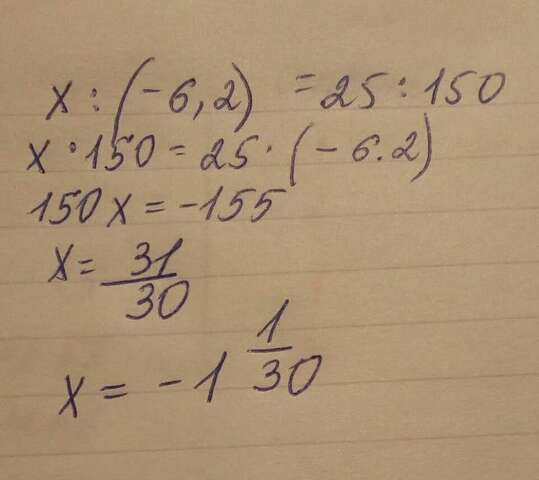 x : (-6,2) = 25 : 150
x · 150 = 25 · (-6.2)
150x = -155
x = 31/30
x = -1 1/30